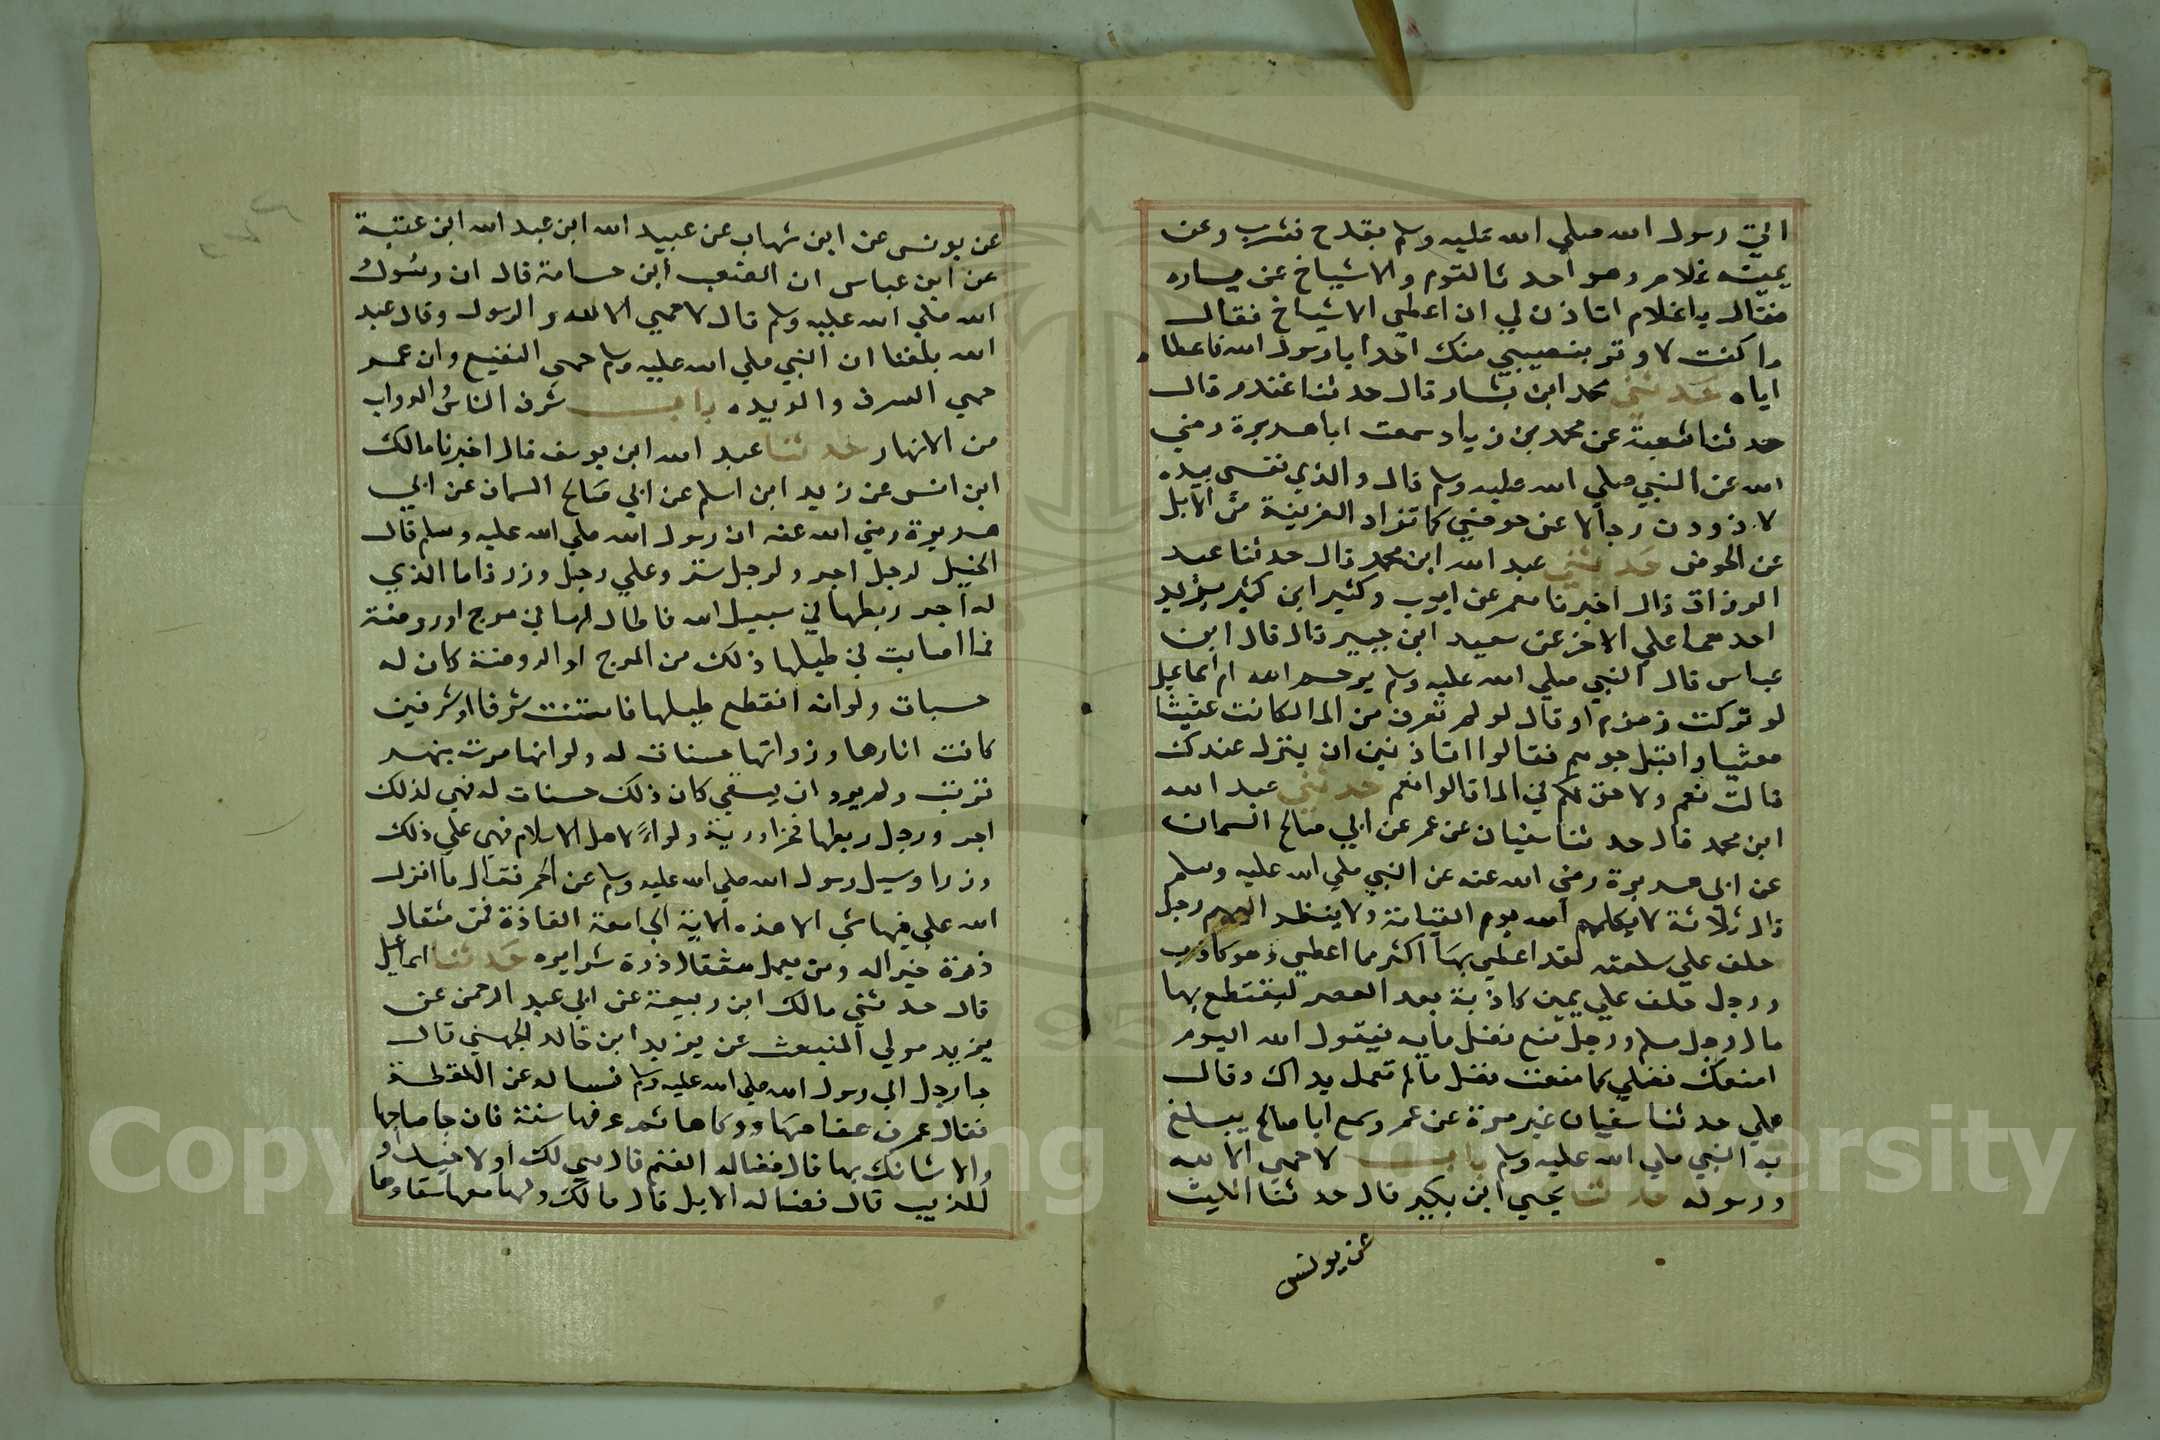 اتي رسول الله صلي الله عليه وسلم بقدح فشرب وعن
يمينه غلام وهو احدث القوم والاشياخ عن يساره
فقال يا غلام اتاذن لي ان اعطي الاشياخ فقال
ما كنت لاوثر بنصيبي منك احدا يا رسول الله فاعطا
اياه حدثني محمد ابن بشار قال حدثنا غندر قال
حدثنا شعبة عن محمد بن زياد سمعت ابا هريرة رضي
الله عن النبي صلي الله عليه وسلم قال والذي نفسي بيده
لاذودن رجالا عن حوضي كما تذاد الغريبة من الابل
عن الحوض حدثني عبد الله ابن محمد قال حدثنا عبد
الرزاق قال اخبرنا معمر عن ايوب وكثير ابن كثير يزيد
احدهما علي الاخر عن سعيد ابن جبير قال قال ابن
عباس قال النبي صلي الله عليه وسلم يرحم الله ام اسماعيل
لو تركت زمزم او قال لو لم تغرف من الما لكانت عينا
معينا واقبل جرهم فقالوا اتاذنين ان ينزل عندك
قالت نعم ولا حق لكم في الما قالوا نعم حدثني عبد الله
ابن محمد قال حدثنا سفيان عن عمر عن ابي صالح السمان
عن ابي هريرة رضي الله عنه عن النبي صلي الله عليه وسلم
قال ثلاثة لا يكلمهم الله يوم القيامة ولا ينظر اليهم رجل
حلف علي سلعته لقد اعطي بها اكثر مما اعطي وهو كاذب
ورجل حلف علي يمين كاذبة بعد العصر ليقتطع بها
مال رجل مسلم ورجل منع فضل مايه فيقول الله اليوم
امنعك فضلي كما منعت فضل ما لم تعمل يداك وقال
علي حدثنا سفيان غير مرة عن عمر وسمع ابا صالح يبلغ
به النبي صلي الله عليه وسلم باب لا حمي الا لله
ورسوله حدثنا يحيي ابن بكير قال حدثنا الليث
عن يونس
عن يونس عن ابن شهاب عن عبيد الله ابن عبد الله ابن عتبة
عن ابن عباس ان الصعب ابن حسامة قال ان رسول
الله صلي الله عليه وسلم قال لا حمي الا لله والرسول وقال عبد
الله بلغنا ان النبي صلي الله عليه وسلم حمي النقيع وان عمر
حمي السرف والربده باب شرف الناس الدواب
من الانهار حدثنا عبد الله ابن يوسف قال اخبرنا مالك
ابن انس عن زيد ابن اسلم عن ابي صالح السمان عن ابي
هريرة رضي الله عنه ان رسول الله صلي الله عليه وسلم قال
الخيل لرجل اجر ولرجل ستر وعلي رجل وزر فاما الذي
له اجر ربطها في سبيل الله فاطال لها في مرج او روضة
فما اصابت في طيلها ذلك من المرج او الروضة كان له
حسبات ولو انه انقطع طيلها فاستنت شرفا او شرفين
كانت اثارها وزواثها حسنات له ولو انها مرت بنهر
فشربت ولم يرد ان يسقي كان ذلك حسنات له فهي لذلك
اجر ورجل ربطها فخرا وريا ولواءً لاهل الاسلام فهي علي ذلك
وزرا وسيل رسول الله صلي الله عليه وسلم عن الحمر فقال ما انزل
الله علي فيها شي الا هذه الاية الجامعة الفاذة فمن مثقال
ذرة خيرا له ومن يعمل مثقال ذرة شرا يره حدثنا اسماعيل
قال حدثني مالك ابن ربيعة عن ابي عبد الرحمن عن
يزيد مولي المنبعث عن يزيد ابن خالد الجهني قال
جا رجل الي رسول الله صلي الله عليه وسلم فساله عن اللقطة
فقال عرف عفاصها ووكاها ثم عرفها سنة فان جا صاحبها
والا شانك بها قال فضالة الغنم قال هي لك او لاخيك او
للذيب قال فضالة الابل قال مالك ولها معها سقاوها